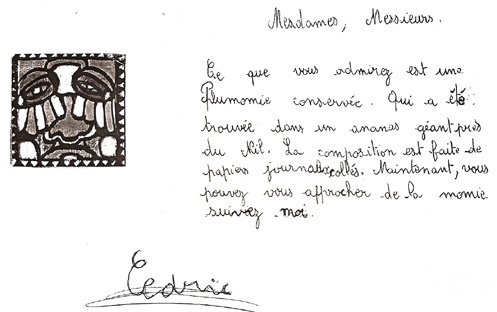 Mesdames, Messieurs.
Ce que vous admirez est une
Plumomie conservée. Qui a été
trouvée dans un ananas géant près
du Nil. La composition est faite de
papiers journaux collés. Maintenant, vous
pouvez vous approcher de la momie
suivez moi.
Cedric